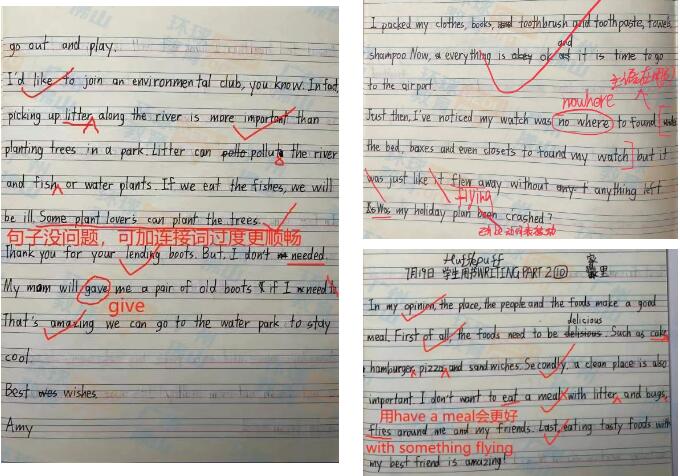 go out and play.
I'd like to join an environmental club, you know. In fact,
picking up litter along the river is more important than
planting trees in a park. Litter can pollu the river
and fish or water plants. If we eat the fishes, we will
be ill. Some plant lover's can plant the trees.
句子没问题，可加连接词过度更顺畅
Thank you for your lending boots. But. I don't needed
My mom will gave me a pair of old boots if I need to
give
That's amazing we can go to the water park to stay
cool.
Best wishes
Amy
I packed my clothes, books, toothbrush and toothpaste, towels
and
shampoo. Now, everything is ok it is time to go
to the airport.
nowhere
Just then, I've noticed my watch was no where to found
the bed, boxes and even closets to found my watch but it
was just like flew away without anything left
flying
Was my holiday plan been crashed?
Hufflpuff
7月19日 学生用书WRITING PART 2 10
delicious
In my opinion, the place, the people and the foods make a good
meal. First of all, the foods need to be delisious. Such as cake,
hamburger, pizza and sandwiches. Secondly, a clean place is also
important I don't want to eat a meal with litter and bugs,
用have a meal会更好
flies around me and my friends. Last, eating tasty foods with
with something flying
my best friend is amazing!